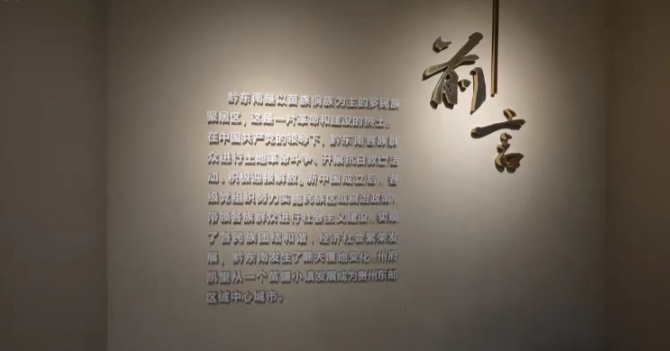 前言
黔东南是以苗族侗族为主的多民族
聚居区，这是一片革命和建设的热土。
在中国共产党的领导下，黔东南各族群
众进行土地革命斗争、开展抗日救亡活
动、积极迎接解放。新中国成立后，各
级党组织努力实施民族区域自治政策，
带领各族群众进行社会主义建设，实现
了各民族团结和谐、经济社会繁荣发
展，黔东南发生了翻天覆地变化，州府
凯里从一个苗疆小镇发展成为贵州东部
区域中心城市。